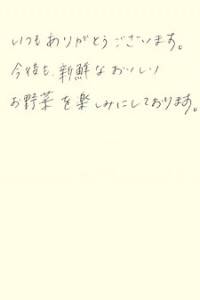 いつもありがとうございます。
今後も、新鮮なおいしい
お野菜を楽しみにしております。